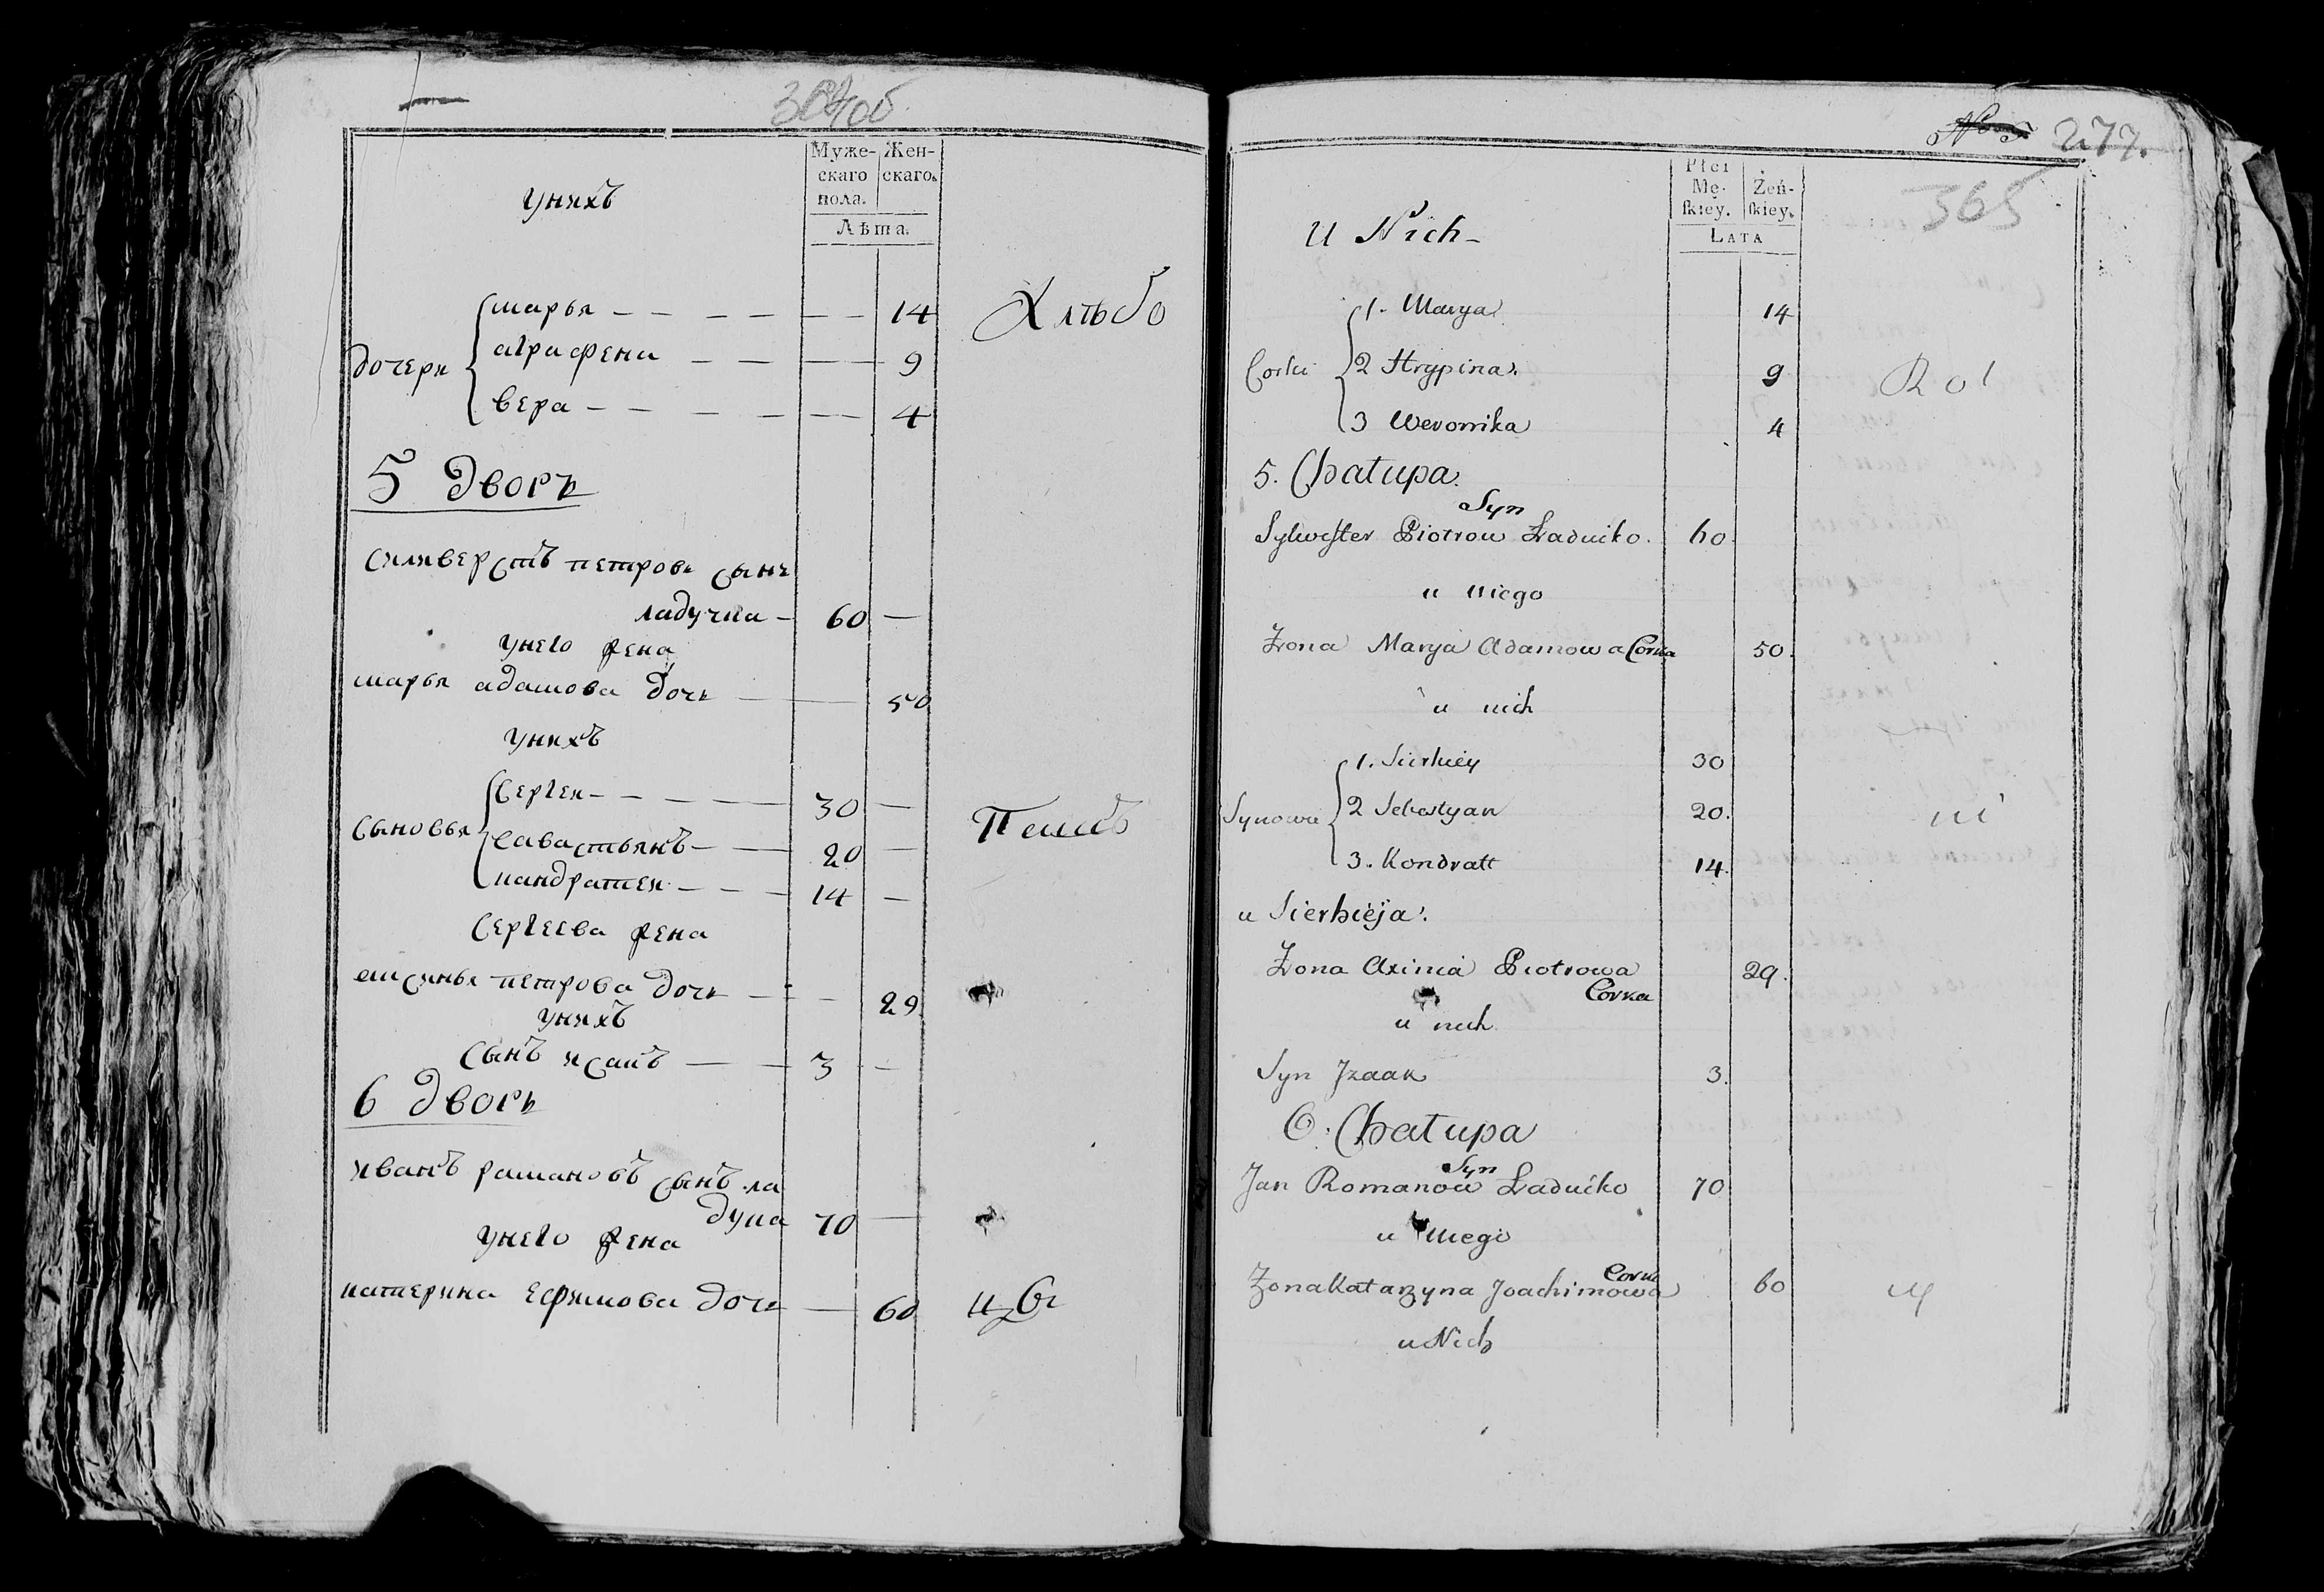 унихъ
Муже-
скаго
пола.
Жен-
скаго.
Лѣта.
дочери
марья — — — — — — 14
аграфена — — — 9
вера — — — — — — 4
Хлѣбо
5 дворъ
силиверстъ петровъ сынъ
ладучка — 60 —
унего жена
марья адамова дочь — — 50
унихъ
сыновья
Сергеи — — — — — 30 —
савастьянъ — — 20 —
кандратеи — — — 14 —
Пашъ
Сергеева жена
аксинья петрова дочь — — — 29
унихъ
Сынъ исакъ — — 3 —
6 дворъ
иванъ рамановъ сынъ ла
дука 70 —
унего жена
катерина ефимова дочь — 60
277.
365
Płci
Mę-
skiey.
Żeń-
skiey.
LATA
U Nich -
Corki
1. Marya 14
2 Hrypina. 9
3 Weronika 4
Rol
5. Chałupa.
Syn
Sylwester Piotrow Ładućko. 60.
u niego
Żona Marya Adamowa Corka 50.
u nich
Synowie
1. Sierhiey 30
2 Sebastyan 20.
3. Kondratt 14.
ni
u Sierhieja.
Żona Axinia Piotrowa 29.
Corka
u nich
Syn Jzaak 3.
6. Chałupa
Syn
Jan Romanow Ładućko 70
u niego
Corka
Żona Katarzyna Joachimowa 60
u Nich